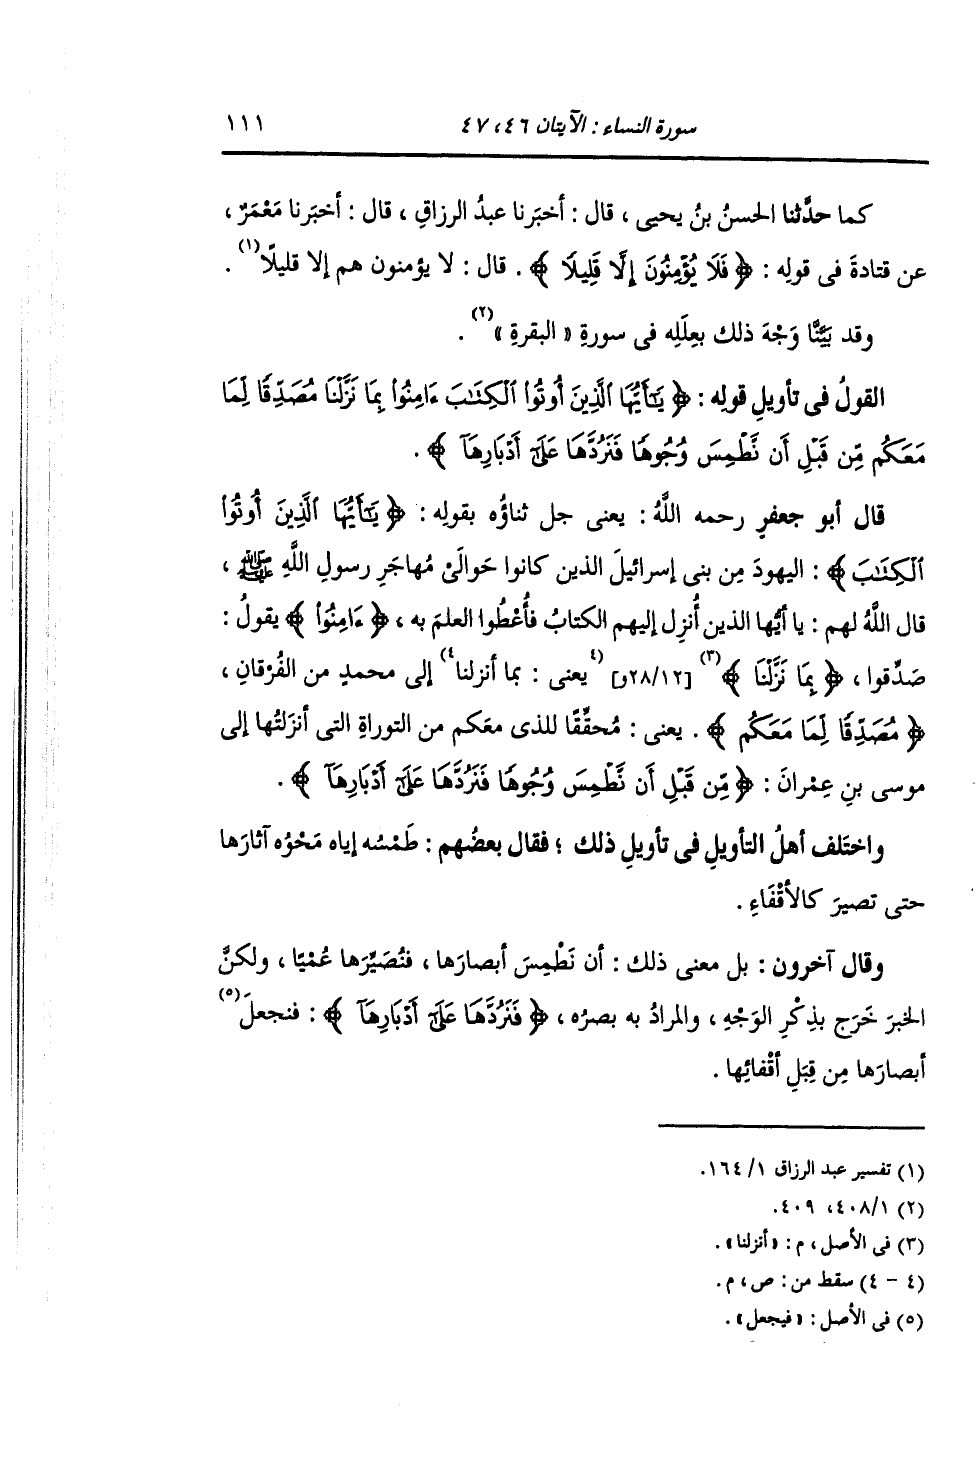 سورة النساء : الآيتان ٤٦ ، ٤٧ ١١١
كما حدَّثنا الحسنُ بنُ يحيى ، قال : أخبَرنا عبدُ الرزاقِ ، قال : أخبَرنا مَعْمَرٌ ،
عن قتادةَ فى قولِه : ﴿ فَلَا يُؤْمِنُونَ إِلَّا قَلِيلًا ﴾ . قال : لا يؤمنون هم إلا قليلًا(١) .
وقد بَيَّنَّا وَجْهَ ذلك بعِلَلِه فى سورةِ « البقرةِ »(٢) .
القولُ فى تأويلِ قولِه : ﴿ يَٰٓأَيُّهَا ٱلَّذِينَ أُوتُوا۟ ٱلْكِتَٰبَ ءَامِنُوا۟ بِمَا نَزَّلْنَا مُصَدِّقًا لِّمَا
مَعَكُم مِّن قَبْلِ أَن نَّطْمِسَ وُجُوهًا فَنَرُدَّهَا عَلَىٰٓ أَدْبَارِهَآ ﴾ .
قال أبو جعفرٍ رحمه اللَّهُ : يعنى جل ثناؤُه بقولِه : ﴿ يَٰٓأَيُّهَا ٱلَّذِينَ أُوتُوا۟
ٱلْكِتَٰبَ ﴾ : اليهودَ مِن بنى إسرائيلَ الذين كانوا حَوالَىْ مُهاجَرِ رسولِ اللَّهِ ﷺ ،
قال اللَّهُ لهم : يا أيُّها الذين أُنزِل إليهم الكتابُ فأُعْطُوا العلمَ به ، ﴿ ءَامِنُوا۟ ﴾ يقولُ :
صَدِّقوا ، ﴿ بِمَا نَزَّلْنَا ﴾(٣) [٢٨/١٢و] (٤يعنى : بما أنزلنا٤) إلى محمدٍ من الفُرْقانِ ،
﴿ مُصَدِّقًا لِّمَا مَعَكُم ﴾ . يعنى : مُحقِّقًا للذى معَكم من التوراةِ التى أنزَلتُها إلى
موسى بنِ عِمْرانَ : ﴿ مِّن قَبْلِ أَن نَّطْمِسَ وُجُوهًا فَنَرُدَّهَا عَلَىٰٓ أَدْبَارِهَآ ﴾ .
واختَلف أهلُ التأويلِ فى تأويلِ ذلك ؛ فقال بعضُهم : طَمْسُه إياه مَحْوُه آثارَها
حتى تصيرَ كالأقْفَاءِ .
وقال آخرون : بل معنى ذلك : أن نَطْمِسَ أبصارَها ، فنُصَيِّرَها عُمْيًا ، ولكنَّ
الخبرَ خَرَج بذِكْرِ الوَجْهِ ، والمرادُ به بصرُه ، ﴿ فَنَرُدَّهَا عَلَىٰٓ أَدْبَارِهَآ ﴾ : فنجعلَ(٥)
أبصارَها مِن قِبَلِ أقْفائِها .
(١) تفسير عبد الرزاق ١/ ١٦٤.
(٢) ١/ ٤٠٨، ٤٠٩.
(٣) فى الأصل ، م : « أنزلنا » .
(٤ - ٤) سقط من : ص ، م .
(٥) فى الأصل : « فيجعل » .